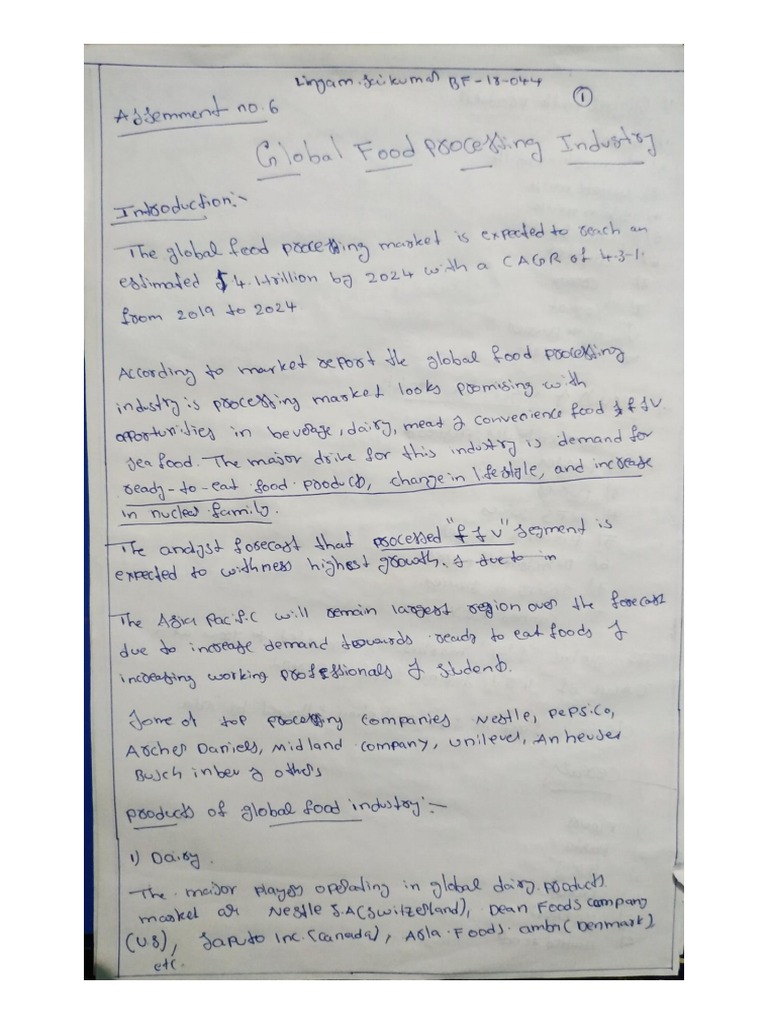 Lingam.Saikumar BF-18-044
1
Assemment no.6
Global Food processing Industry
Introduction:-
The global food processing market is expected to reach an
estimated $4.1trillion by 2024 with a CAGR of 4.3%
from 2019 to 2024
According to market report the global food processing
industry is processing market looks promising with
opportunities in beverage, dairy, meat & convenience food & f & V
sea food. The major drive for this industry is demand for
ready-to-eat food products, change in lifestyle, and increase
in nuclear family.
The analyst forecast that processed "f & V" segment is
expected to withness highest growth. & due to in
The Asia Pacific will remain largest region over the forecast
due to increase demand towards ready to eat foods &
increasing working professionals & students.
Some of top processing companies Nestle, PepsiCo,
Archer Daniels, Midland company, unilever, Anheuser
Busch inbev & others
products of global food industry:-
1) Dairy.
The major players operating in global dairy products
market are Nestle S.A(Switzerland), Dean Foods company
(US), Saputo Inc.(Canada), Arla Foods amba(Denmark)
etc.